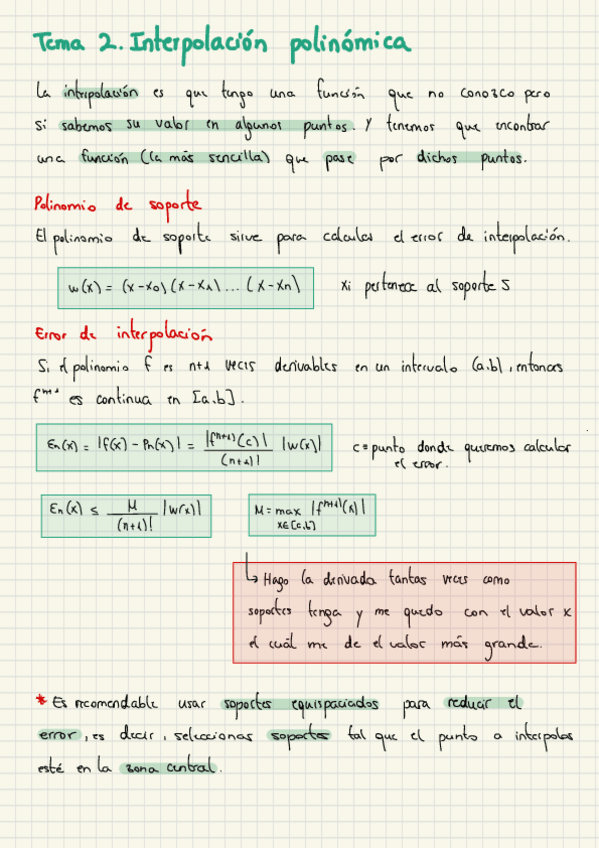 Tema 2. Interpolación polinómica
La interpolación es que tengo una función que no conozco pero
si sabemos su valor en algunos puntos. Y tenemos que encontrar
una función (la más sencilla) que pase por dichos puntos.
Polinomio de soporte
El polinomio de soporte sirve para calcular el error de interpolación.
w(x) = (x-x₀)(x-x₁)...(x-xn) xi pertenece al soporte S
Error de interpolación
Si el polinomio f es n+1 veces derivables en un intervalo (a,b), entonces
fⁿ⁺¹ es continua en [a,b].
εn(x) = |f(x) - Pn(x)| = |fⁿ⁺¹)(c)| / (n+1)! |w(x)| c = punto donde queremos calcular
el error.
εn(x) ≤ M / (n+1)! |w(x)| M = max |fⁿ⁺¹)(x)|
x∈[a,b]
↳ Hago la derivada tantas veces como
soportes tenga y me quedo con el valor x
el cuál me de el valor más grande.
* Es recomendable usar soportes equispaciados para reducir el
error, es decir, seleccionar soportes tal que el punto a interpolar
esté en la zona central.